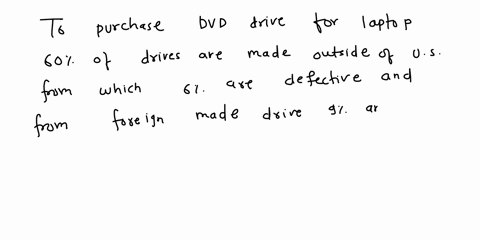 To purchase DVD drive for laptop
60% of drives are made outside of U.S.
from which 6% are defective and
from foreign made drive 9% ar